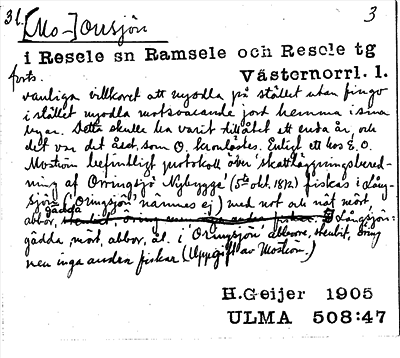 31.
3
[Mo-]Onsjön
i Resele sn Ramsele och Resele tg
forts.
Västernorrl. l.
vanliga villkoret att uppodla på stället utan fingo
i stället uppodla motsvarande jord hemma i sina
byar. Detta skulle ha varit tillåtet ett enda år, och
det var det året, som O. kronlöstes. Enligt ett hos E.O.
Moström befintligt protokoll över "skattläggningsbered-
ning af Orringsjö Nybygge" (5te okt. 1812) fiskas i Lång-
sjön ("Oringsjön" nämnes ej) med not och nät mört,
abbor, gädda
Långsjön:
gädda, mört, abbor, ål. i "Oringsjön" abborre, stenbit, öring
men inga andra fiskar (Uppgift av Moström.)
H.Geijer 1905
ULMA 508:47